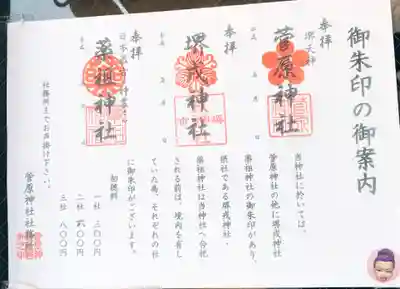 御朱印の御案内
奉拝
堺天神
菅原神社
奉拝
堺戎神社
奉拝
薬祖神社
当神社に於いては、
菅原神社の他に堺戎神社
薬祖神社の御朱印があり、
摂社である堺戎神社、
薬祖神社は当神社へ合祀
される前は、境内を有し
ていた為、それぞれの社
に御朱印がございます。
初穂料
一社 三〇〇円
二社 六〇〇円
三社 八〇〇円
社務所までお声掛け下さい。
菅原神社社務所